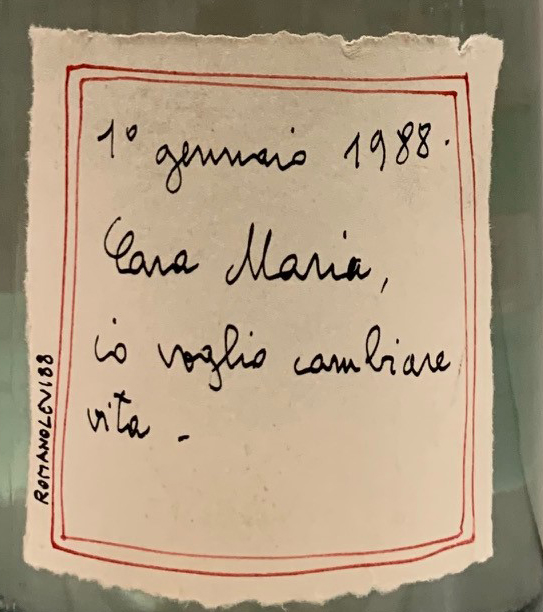 1° gennaio 1988.
Cara Maria,
io voglio cambiare
vita -
ROMANOLEVI88